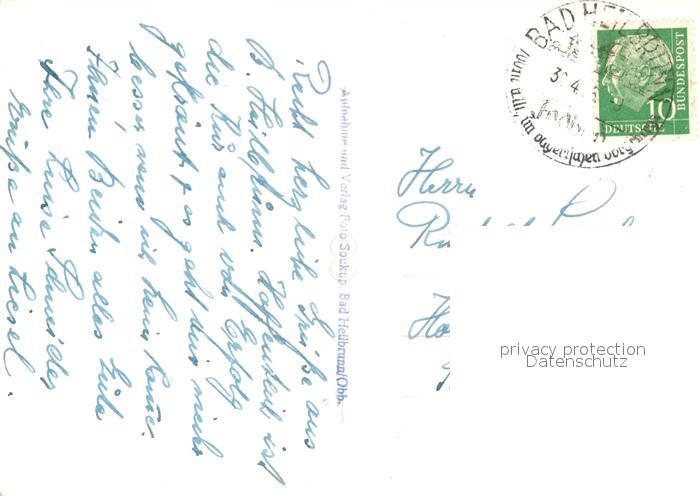 Recht herzliche Grüße aus
B. Heilbrunn. Hoffentlich ist
die Kur auch von Erfolg
gekrönt, es geht uns nicht
besser wenn wir heim
Ihnen Beiden alles Gute
Ihre Luise Schneider
Grüße an Liesel.
Aufnahme und Verlag Foto Soukup, Bad Heilbrunn/Obb.
BAD HEILBRUNN
10
DEUTSCHE
BUNDESPOST
Herrn
privacy protection
Datenschutz